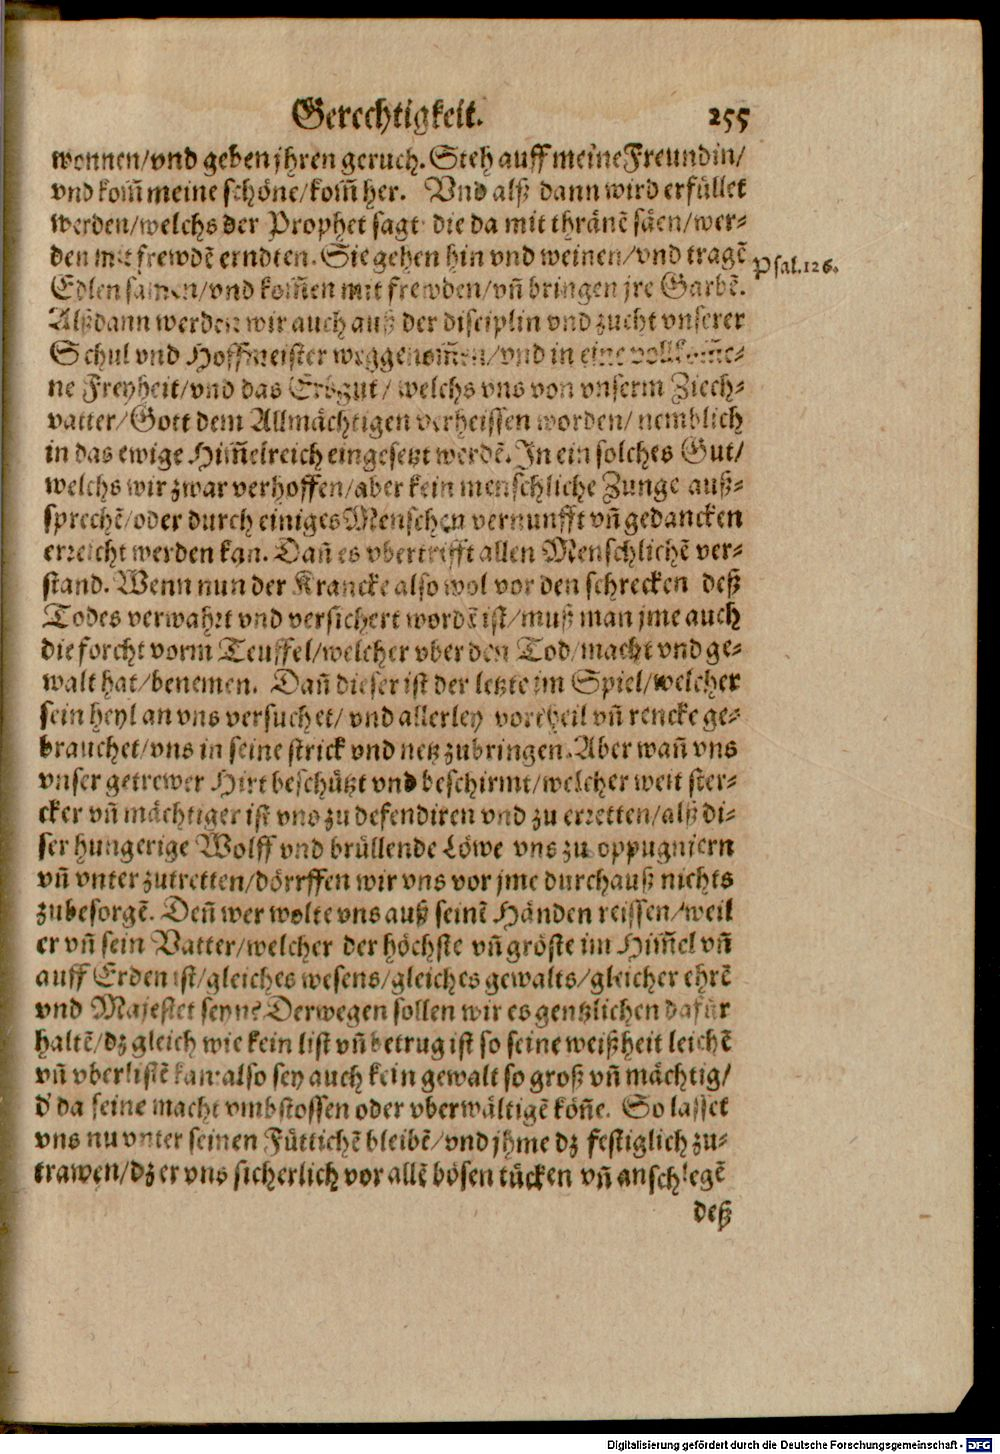 Gerechtigkeit. 255
wonnen/vnd geben jhren geruch. Steh auff meine Freundin/
vnd kom̃ meine schöne/kom̃ her. Vnd alß dann wird erfüllet
werden/welchs der Prophet sagt die da mit thränẽ säen/wer-
den mit frewdẽ erndten. Sie gehen hin vnd weinen/vnd tragẽ
Psal.126.
Edlen samen/vnd kom̃en mit frewden/vñ bringen jre Garbẽ.
Alßdann werden wir auch auß der disciplin vnd zucht vnserer
Schul vnd Hoffmeister weggenom̃en/vnd in eine vollkom̃e-
ne Freyheit/vnd das Erbgut/welchs vns von vnserm Ziech-
vatter/Gott dem Allmächtigen verheissen worden/nemblich
in das ewige Him̃elreich eingesetzt werdẽ. In ein solches Gut/
welchs wir zwar verhoffen/aber kein menschliche Zunge auß-
sprechẽ/oder durch einiges Menschen vernunfft vñ gedancken
erreicht werden kan. Dañ es vbertrifft allen Menschlichẽ ver-
stand. Wenn nun der Krancke also wol vor den schrecken deß
Todes verwahrt vnd versichert wordẽ ist/muß man jme auch
die forcht vorm Teuffel/welcher vber den Tod/macht vnd ge-
walt hat/benemen. Dañ dieser ist der letzte im Spiel/welcher
sein heyl an vns versuchet/vnd allerley vortheil vñ rencke ge-
brauchet/vns in seine strick vnd netz zubringen. Aber wañ vns
vnser getrewer Hirt beschützt vnd beschirmt/welcher weit ster-
cker vñ mächtiger ist vns zu defendiren vnd zu erretten/alß di-
ser hungerige Wolff vnd brüllende Löwe vns zu oppugniern
vñ vnter zutretten/dörrffen wir vns vor jme durchauß nichts
zubesorgẽ. Deñ wer wolte vns auß seinẽ Händen reissen/weil
er vñ sein Vatter/welcher der höchste vñ gröste im Him̃el vñ
auff Erden ist/gleiches wesens/gleiches gewalts/gleicher ehrẽ
vnd Majestet seyn? Derwegen sollen wir es gentzlichen dafür
haltẽ/dz gleich wie kein list vñ betrug ist so seine weißheit leichẽ
vñ vberlistẽ kan: also sey auch kein gewalt so groß vñ mächtig/
d' da seine macht vmbstossen oder vberwältigẽ köñe. So lasset
vns nu vnter seinen Füttichẽ bleibẽ/vnd jhme dz festiglich zu-
trawen/dz er vns sicherlich vor allẽ bösen tücken vñ anschlegẽ
deß
Digitalisierung gefördert durch die Deutsche Forschungsgemeinschaft - DFG